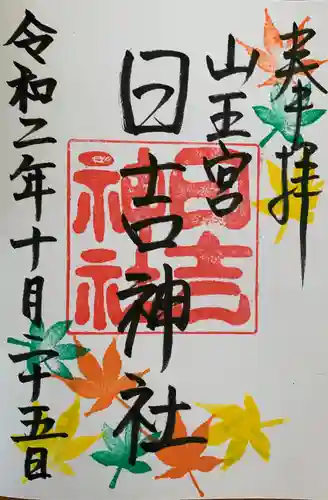 奉拝
山王宮
日吉神社
日吉神社
令和二年十月二十五日